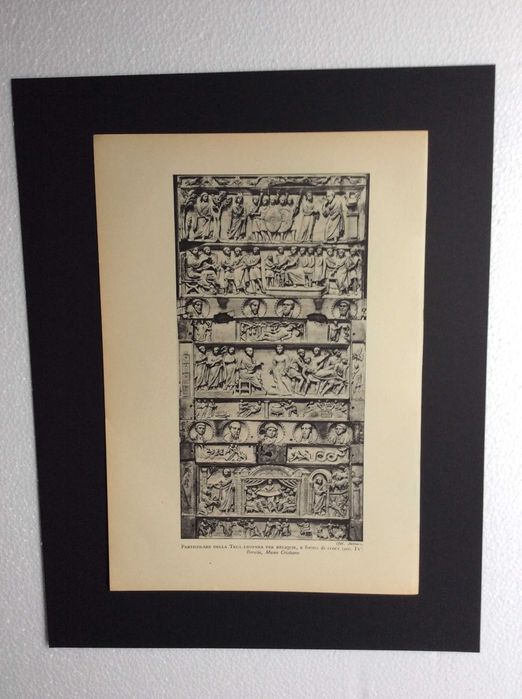 PARTICOLARE DELLA TECA-LIPSANA PER RELIQUIE, a forma di croce (sec. IV)
Brescia, Museo Cristiano